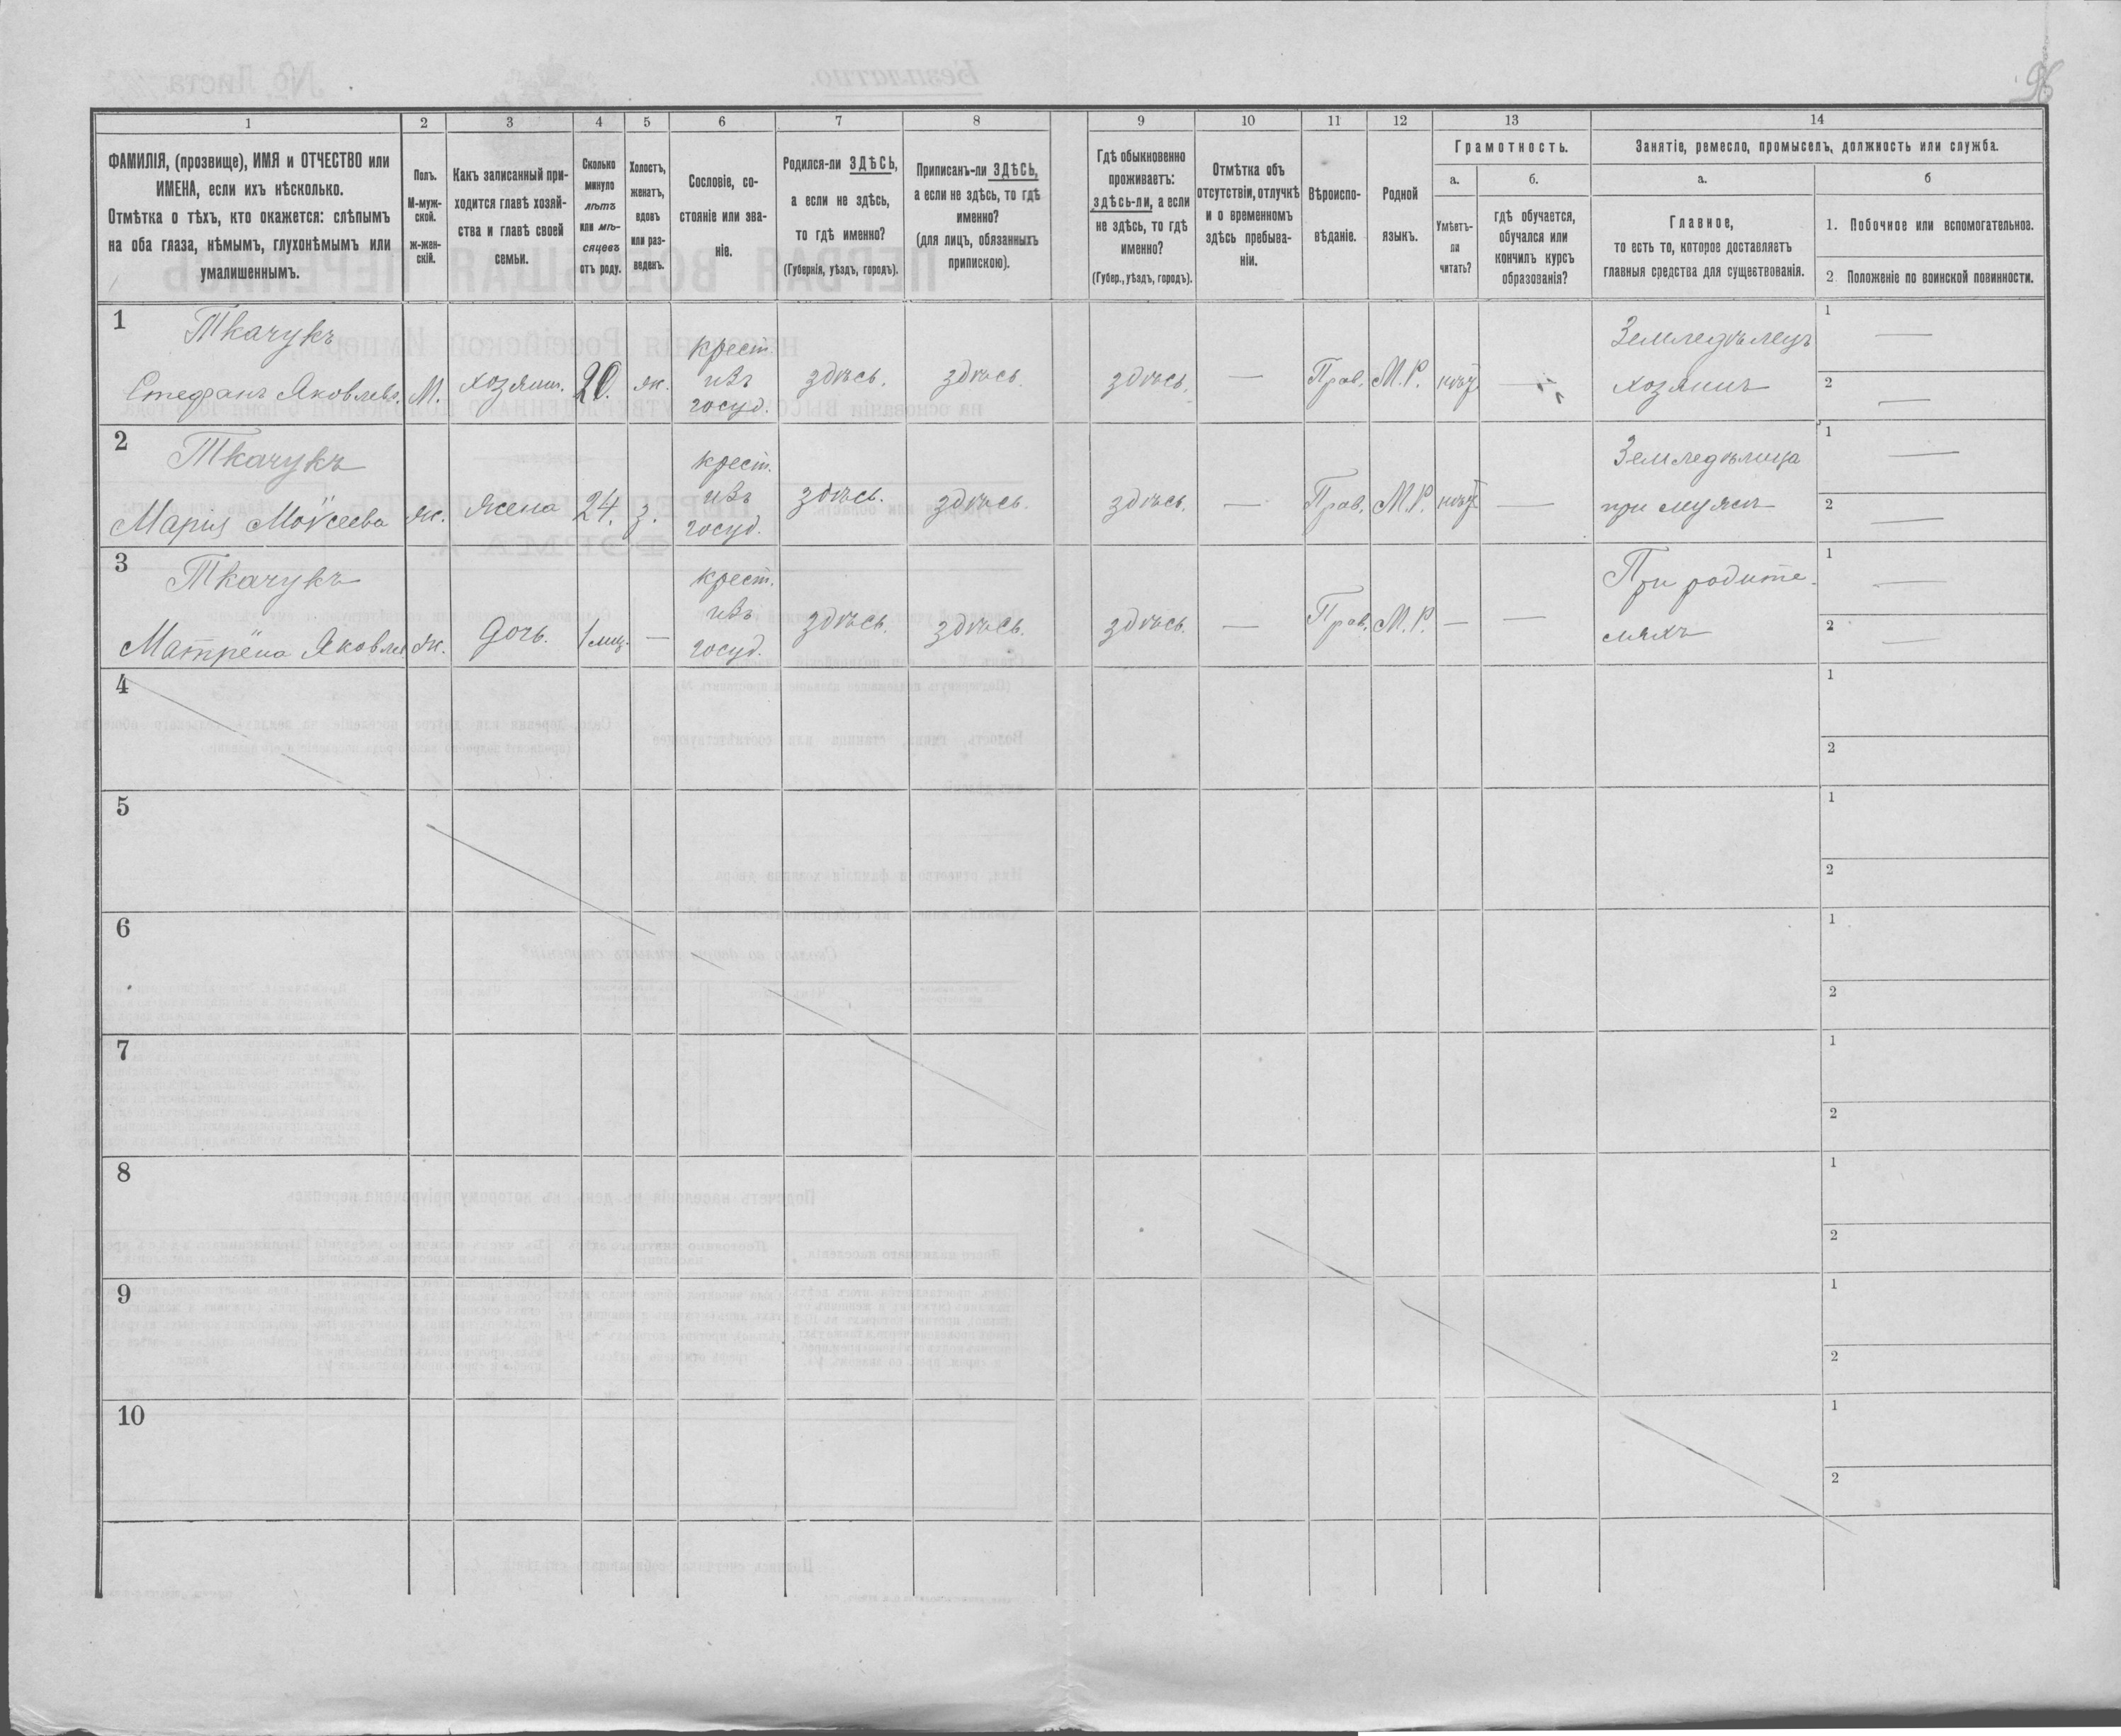 1 2 3 4 5 6 7 8 9 10 11 12 13 14
ФАМИЛІЯ, (прозвище), ИМЯ и ОТЧЕСТВО или
ИМЕНА, если ихъ нѣсколько.
Отмѣтка о тѣхъ, кто окажется: слѣпымъ
на оба глаза, нѣмымъ, глухонѣмымъ или
умалишеннымъ.
Полъ.
М-муж-
ской.
ж-жен-
скій.
Какъ записанный при-
ходится главѣ хозяй-
ства и главѣ своей
семьи.
Сколько
минуло
лѣтъ
или мѣ-
сяцевъ
отъ роду.
Холостъ,
женатъ,
вдовъ
или раз-
веденъ.
Сословіе, со-
стояніе или зва-
ніе.
Родился-ли ЗДѢСЬ,
а если не здѣсь,
то гдѣ именно?
(Губернія, уѣздъ, городъ).
Приписанъ-ли ЗДѢСЬ,
а если не здѣсь, то гдѣ
именно?
(для лицъ, обязанныхъ
припискою).
Гдѣ обыкновенно
проживаетъ:
здѣсь-ли, а если
не здѣсь, то гдѣ
именно?
(Губер., уѣздъ, городъ).
Отмѣтка объ
отсутствіи, отлучкѣ
и о временномъ
здѣсь пребыва-
ніи.
Вѣроиспо-
вѣданіе.
Родной
языкъ.
Грамотность.
а. б.
Умѣетъ-
ли
читать?
гдѣ обучается,
обучался или
кончилъ курсъ
образованія?
Занятіе, ремесло, промыселъ, должность или служба.
а. б
Главное,
то есть то, которое доставляетъ
главныя средства для существованія.
1. Побочное или вспомогательное.
2. Положеніе по воинской повинности.
1 Ткачукъ крест. Земледѣлецъ 1 —
Стефанъ Яковлев. М. хозяин. 20. ж. изъ здѣсь. здѣсь. здѣсь. — Прав. М.Р. — хозяинъ 2 —
госуд.
2 Ткачукъ крест. Земледѣлица 1 —
Марія Моѵсеева ж. жена 24. з. изъ здѣсь. здѣсь. здѣсь. — Прав. М.Р. — при мужѣ 2 —
госуд.
3 Ткачукъ крест. При родите- 1 —
Матрёна Яковлев ж. дочь. 1 мц. — изъ здѣсь. здѣсь. здѣсь. Прав. М.Р. — — ляхъ 2 —
госуд.
4 1
2
5 1
2
6 1
2
7 1
2
8 1
2
9 1
2
10 1
2